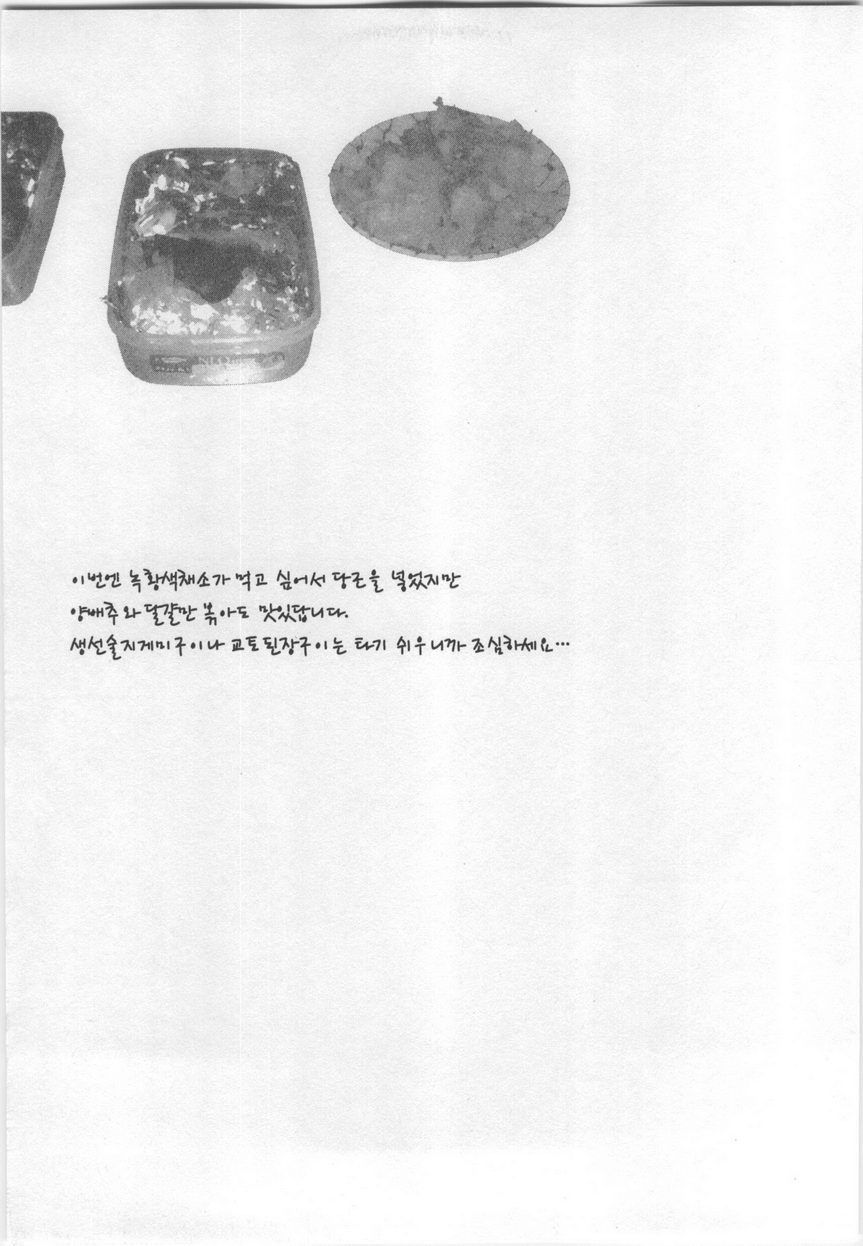 이번엔 녹황색채소가 먹고 싶어서 당근을 넣었지만
양배추와 달걀만 볶아도 맛있답니다.
생선술지게미구이나 교토된장구이는 타기 쉬우니까 조심하세요…